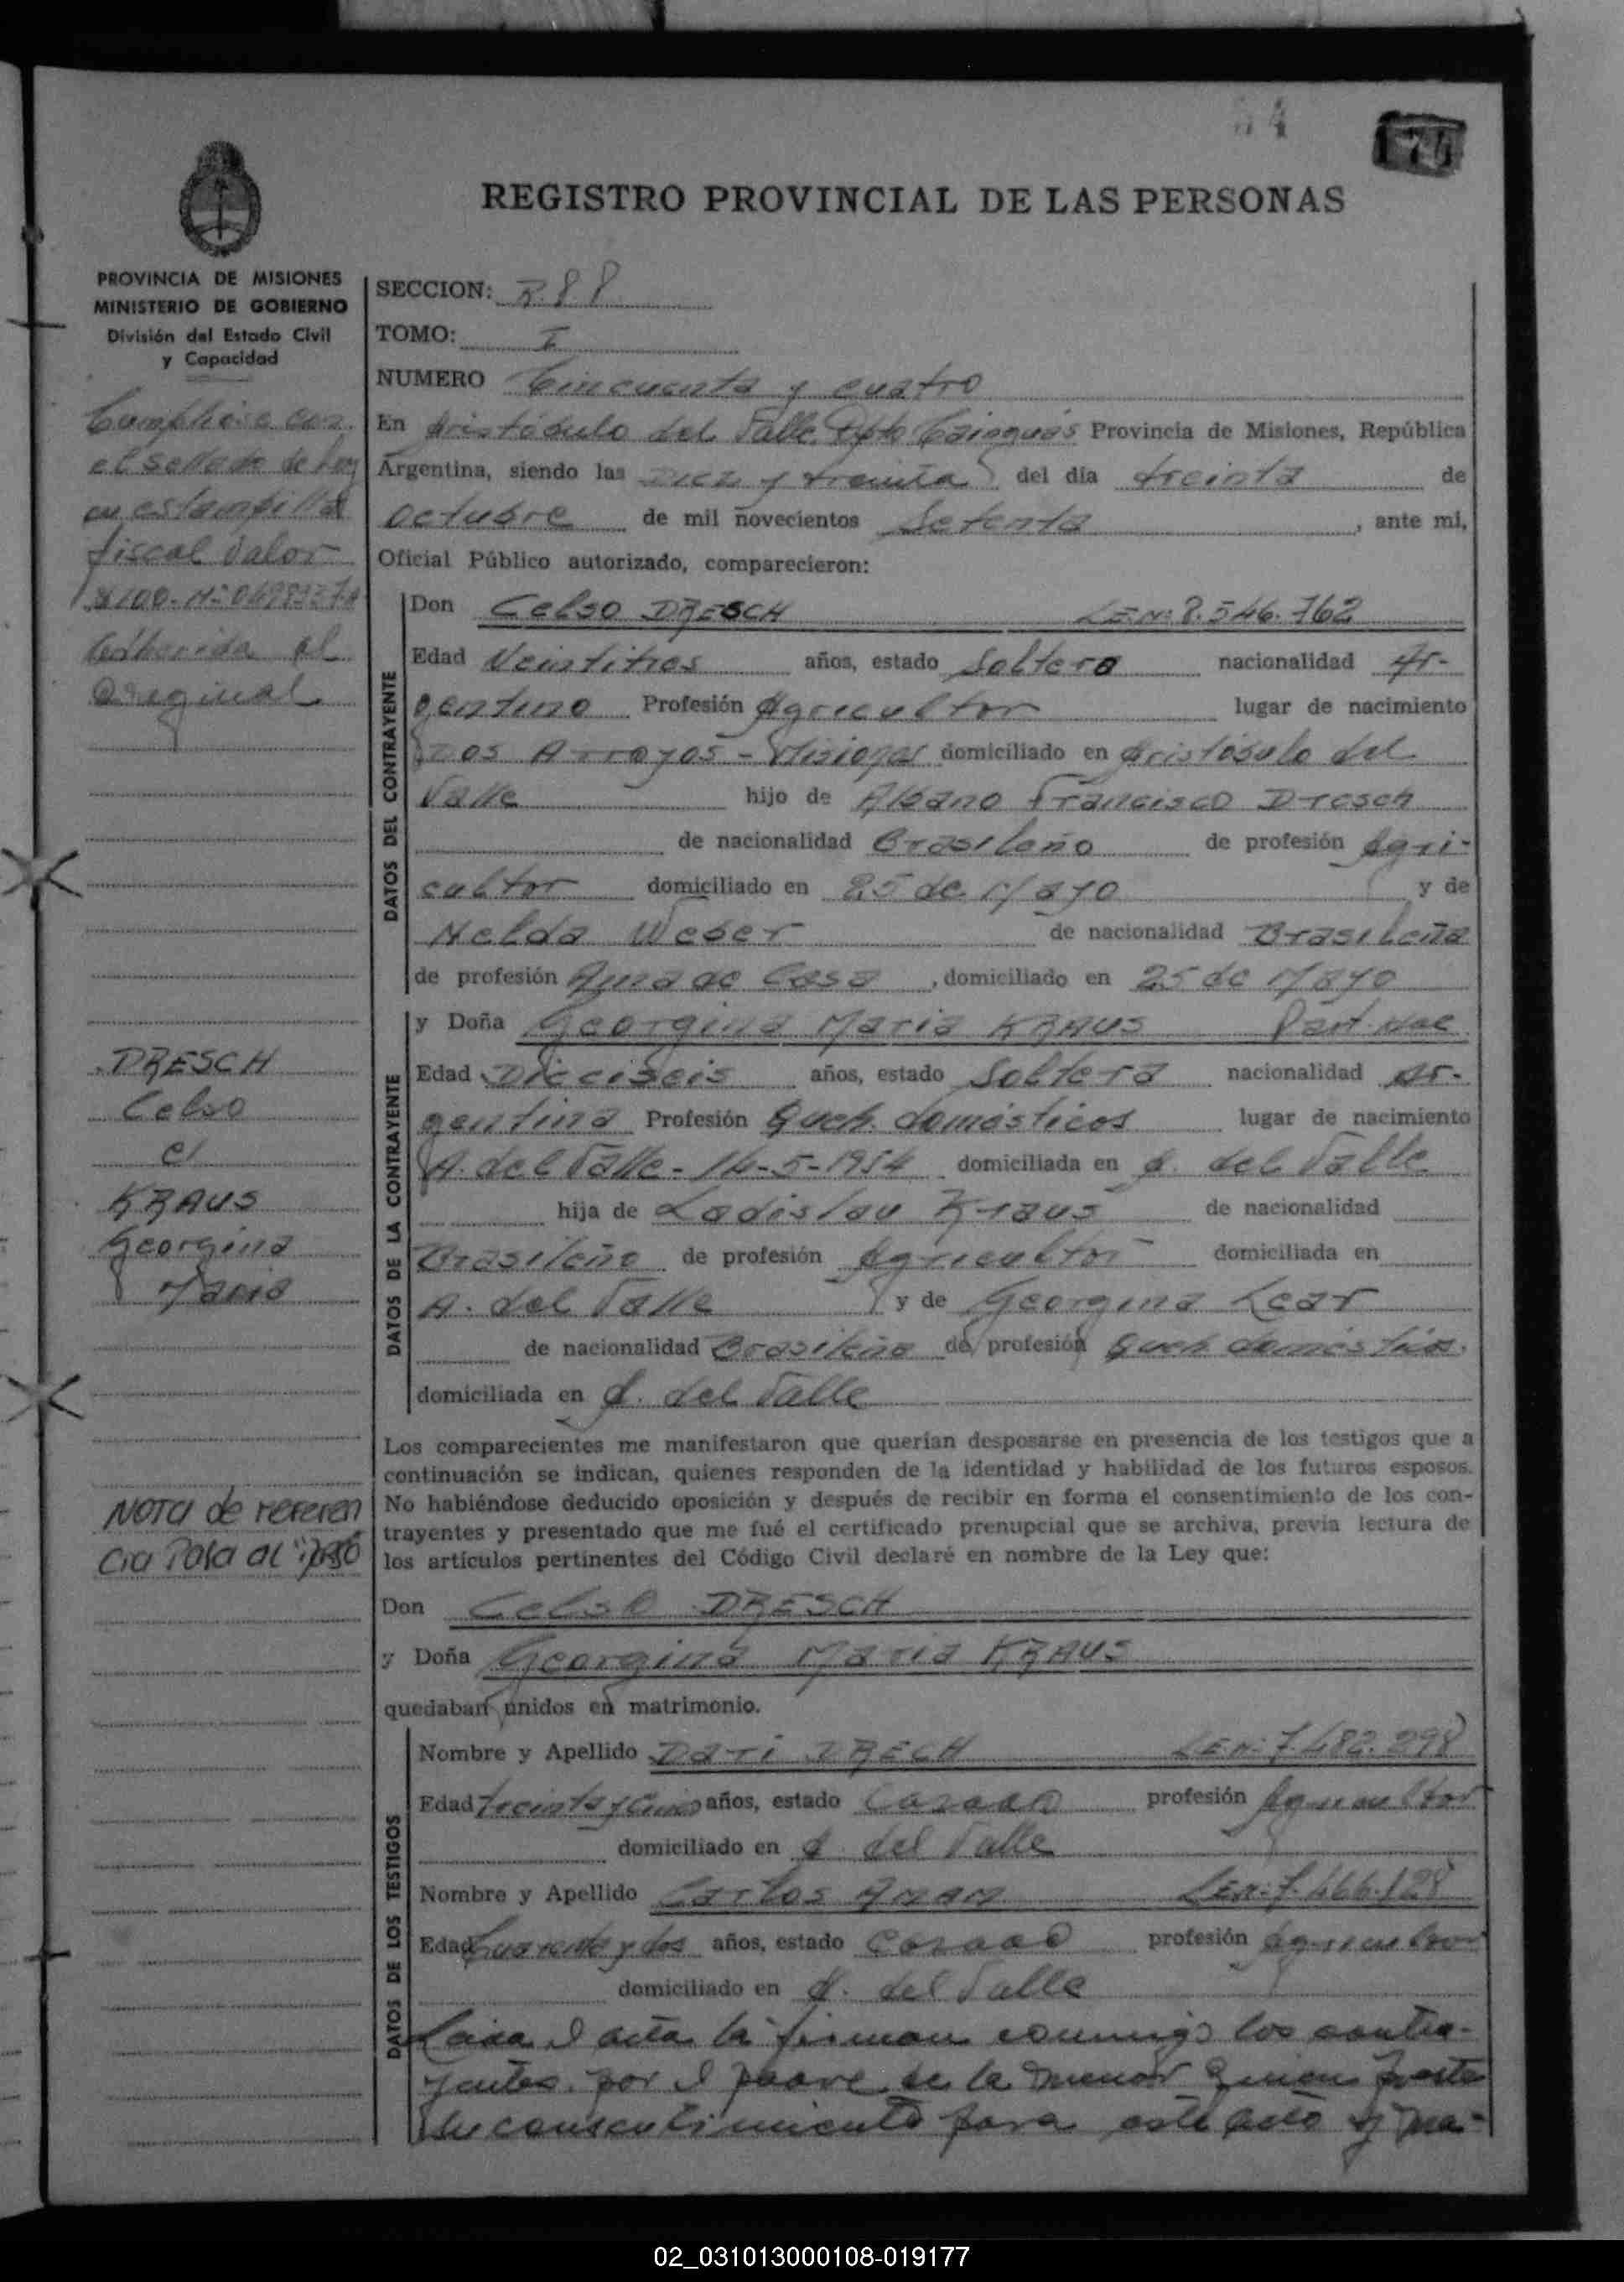 54
REGISTRO PROVINCIAL DE LAS PERSONAS
PROVINCIA DE MISIONES
MINISTERIO DE GOBIERNO
División del Estado Civil
y Capacidad
el sellado de ley
en estampilla
fiscal valor
adherida al
original
DRESCH
Celso
c/
KRAUS
Georgina
Maria
NOTA de referen
cia Pasa al
SECCION: R.88
TOMO: I
NUMERO Cincuenta y cuatro
En Aristóbulo del Valle Dpto Cainguás Provincia de Misiones, República
Argentina, siendo las diez y treinta del día treinta de
Octubre de mil novecientos Setenta, ante mi,
Oficial Público autorizado, comparecieron:
DATOS DEL CONTRAYENTE
Don Celso DRESCH LE.Nº 8.546.762
Edad Veintitres años, estado Soltero nacionalidad Ar-
gentino Profesión Agricultor lugar de nacimiento
Dos Arroyos - Misiones domiciliado en Aristóbulo del
Valle hijo de Albano Francisco Dresch
de nacionalidad Brasileño de profesión Agri-
cultor domiciliado en 25 de Mayo y de
Nelda Weber de nacionalidad Brasileña
de profesión Ama de Casa, domiciliado en 25 de Mayo
DATOS DE LA CONTRAYENTE
y Doña Georgina Maria KRAUS Part. Nac
Edad Dieciseis años, estado Soltera nacionalidad Ar-
gentina Profesión Queh. domésticos lugar de nacimiento
A. del Valle - 14-5-1954 domiciliada en A. del Valle
hija de Ladislau Kraus de nacionalidad
Brasileño de profesión Agricultor domiciliada en
A. del Valle y de Georgina Lear
de nacionalidad Brasileña de profesión Queh domésticos.
domiciliada en A. del Valle
Los comparecientes me manifestaron que querían desposarse en presencia de los testigos que a
continuación se indican, quienes responden de la identidad y habilidad de los futuros esposos.
No habiéndose deducido oposición y después de recibir en forma el consentimiento de los con-
trayentes y presentado que me fué el certificado prenupcial que se archiva, previa lectura de
los artículos pertinentes del Código Civil declaré en nombre de la Ley que:
Don Celso DRESCH
y Doña Georgina Maria KRAUS
quedaban unidos en matrimonio.
DATOS DE LOS TESTIGOS
Nombre y Apellido Dari DRECH LEnº 7.482.298
Edad Treinta y Cinco años, estado Casado profesión Agricultor
domiciliado en A. del Valle
Nombre y Apellido Carlos AMAM LEnº 7.466.128
Edad Cuarenta y dos años, estado Casado profesión Agricultor
domiciliado en A. del Valle
Leida el acta la firman conmigo los contra-
yentes por el padre de la menor quien presta
su consentimiento para este acto y
02_031013000108-019177